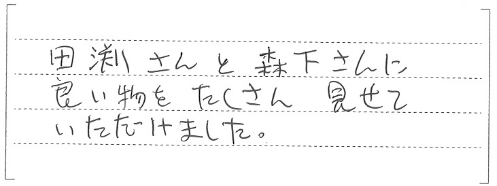 田渕さんと森下さんに
良い物をたくさん見せて
いただけました。